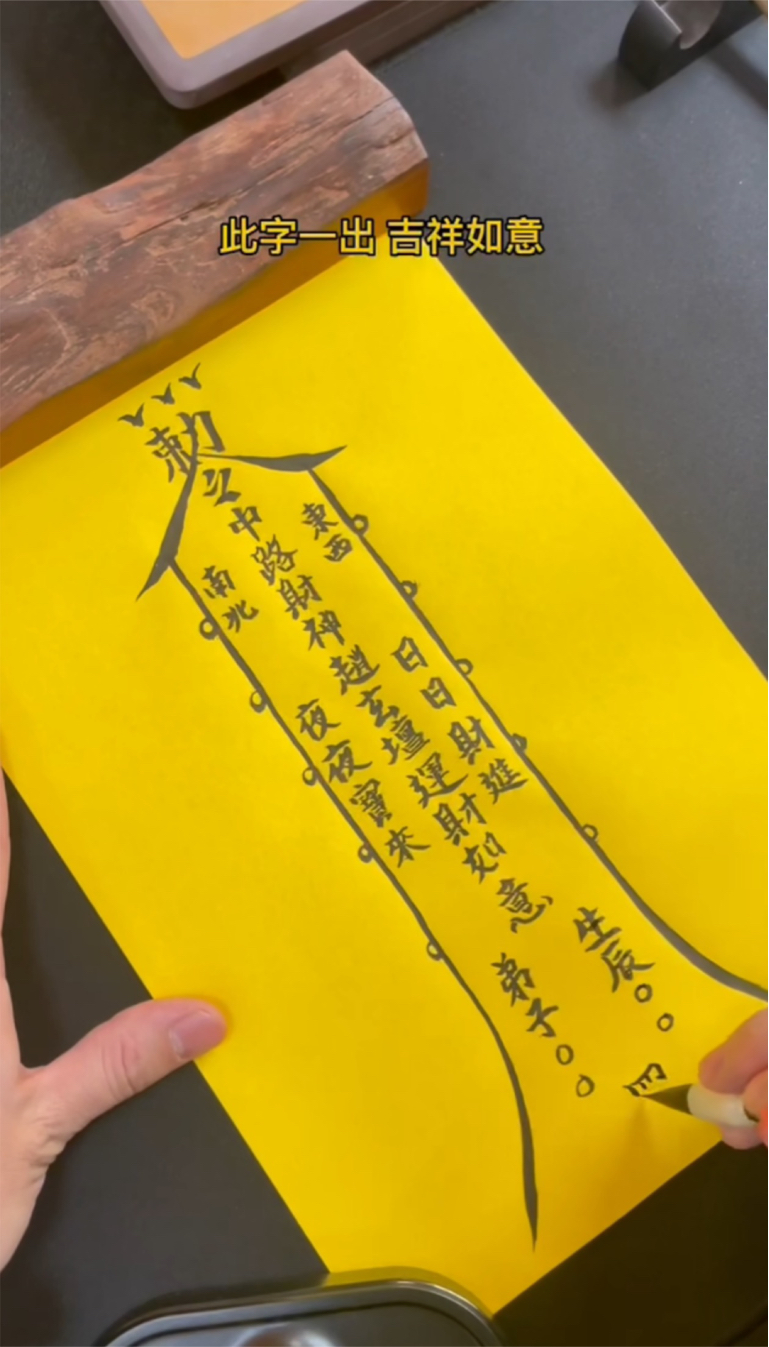 此字一出 吉祥如意
勅
令
東西
中路財神趙玄壇運財如意
南北
日日財進
夜夜寶來
生辰○○
弟子○○